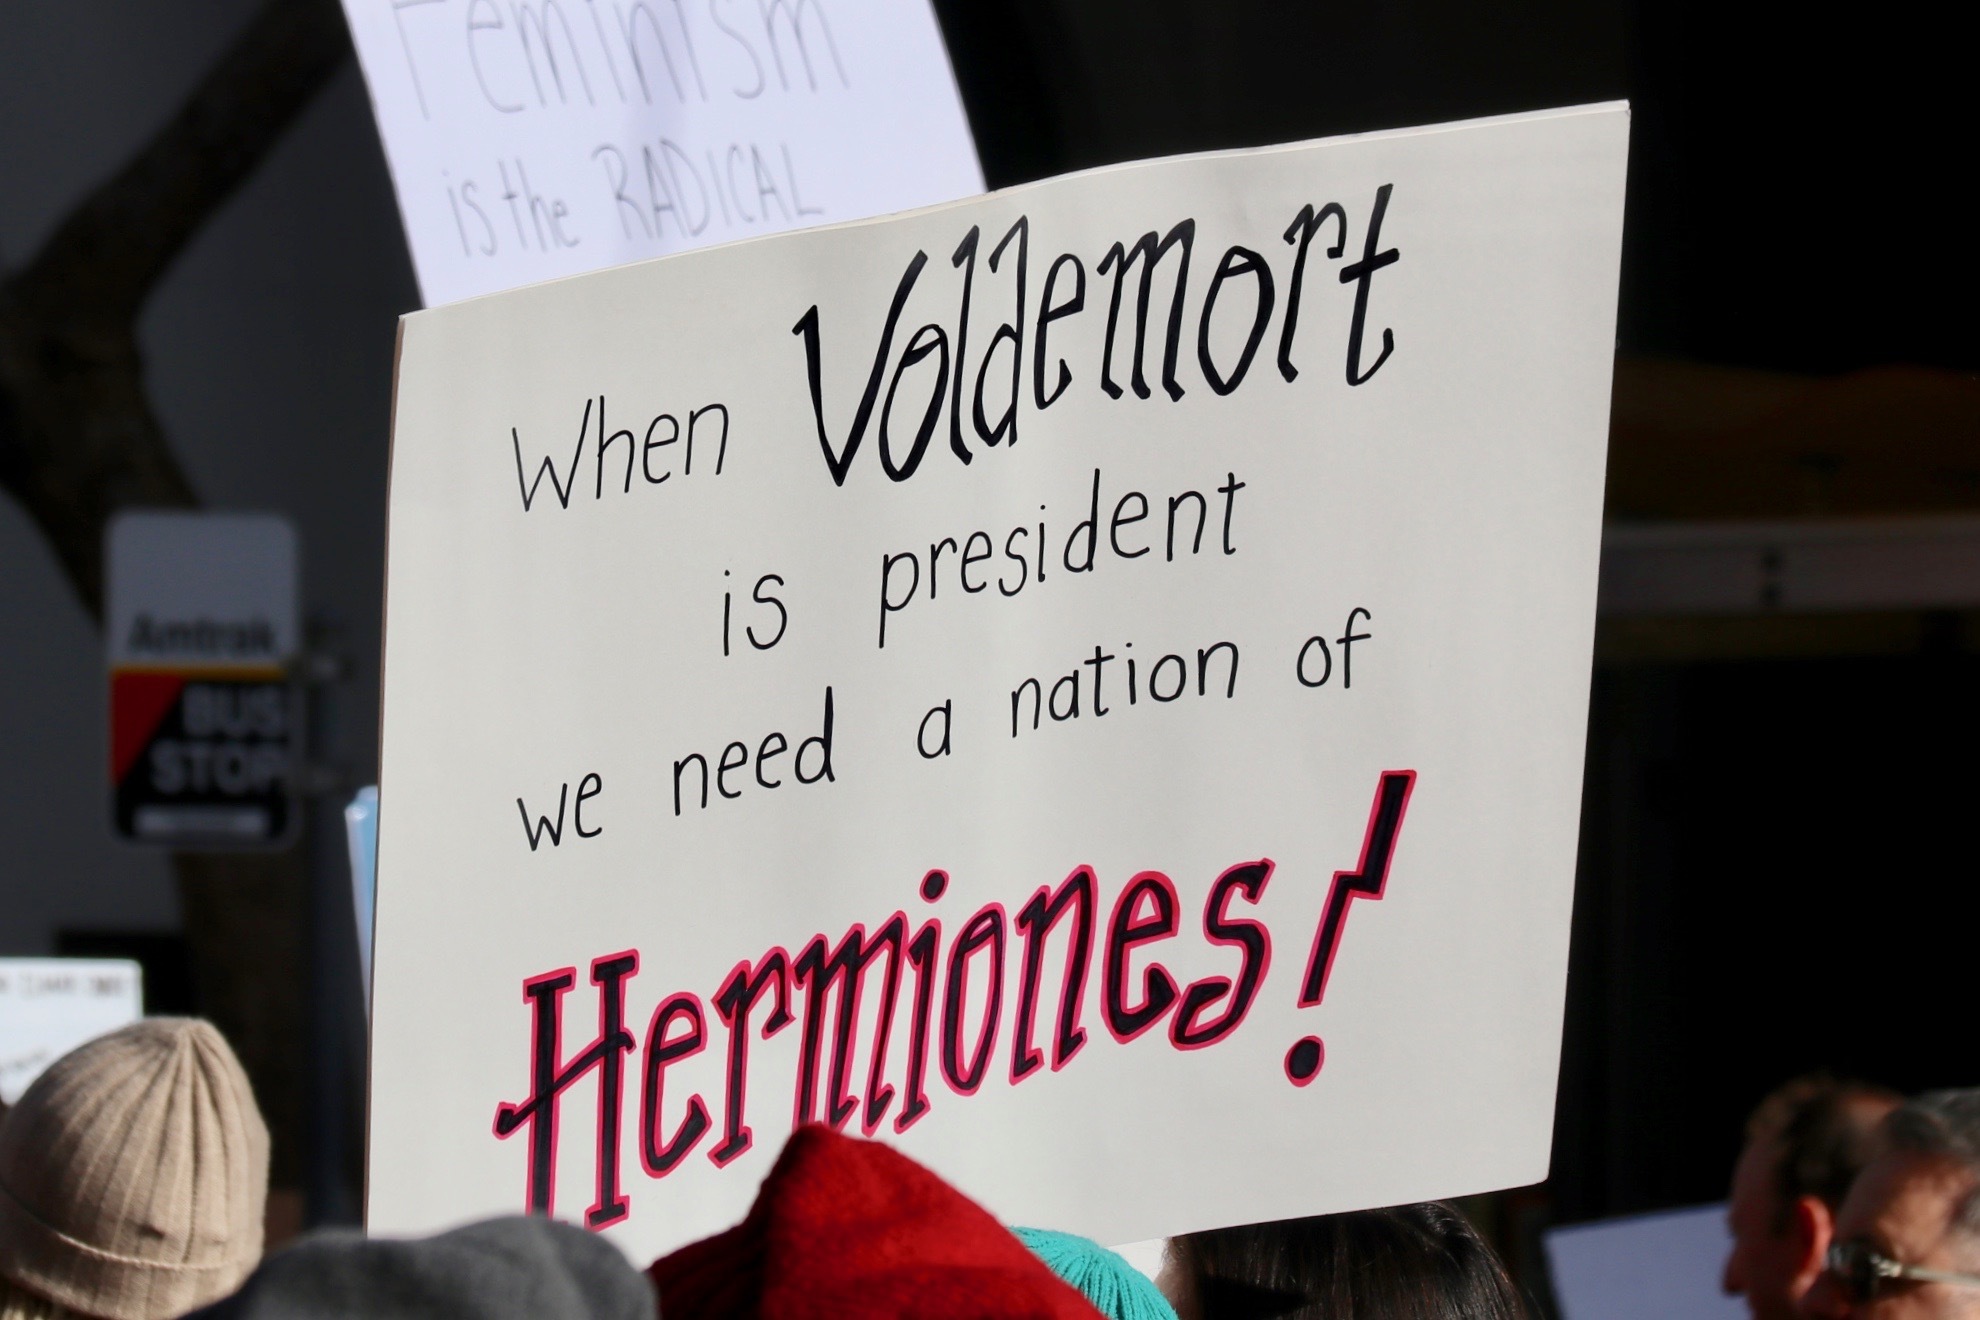 Feminism
is the RADICAL
When Voldemort
is president
we need a nation of
Hermiones!
Amtrak
BUS
STOP